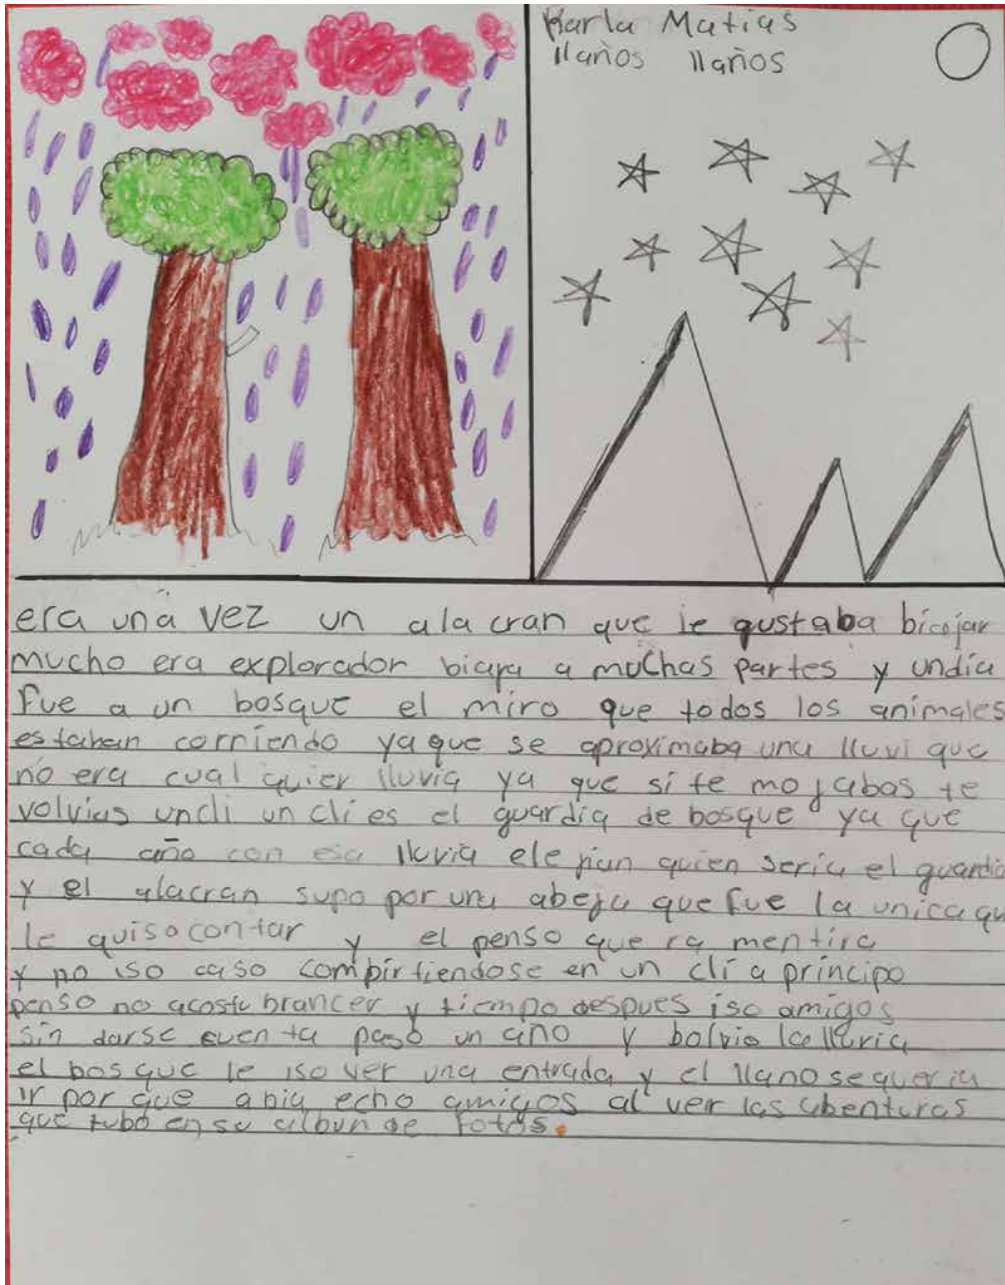 Karla Matias
11años 11años
era una vez un ala cran que le gustaba biajar
mucho era explorador biaja a muchas partes y undia
fue a un bosque el miro que todos los animales
estaban corriendo yaque se aproximaba una lluvi que
no era cual quier lluvia ya que si te mojabas te
volvias uncli un cli es el guardia de bosque ya que
cada año con esa lluvia ele jian quien seria el guardia
y el alacran supo por una abeja que fue la unica qu
le quiso contar y el penso que ra mentira
y no iso caso combirtiendose en un cli a principo
penso no acostubrancer y tiempo despues iso amigos
sin darse cuen ta pasó un año y bolvio la lluvia
el bos que le iso ver una entrada y el llano sequeria
ir por que abia echo amigos al ver las abenturas
que tubo en su albun de fotos.